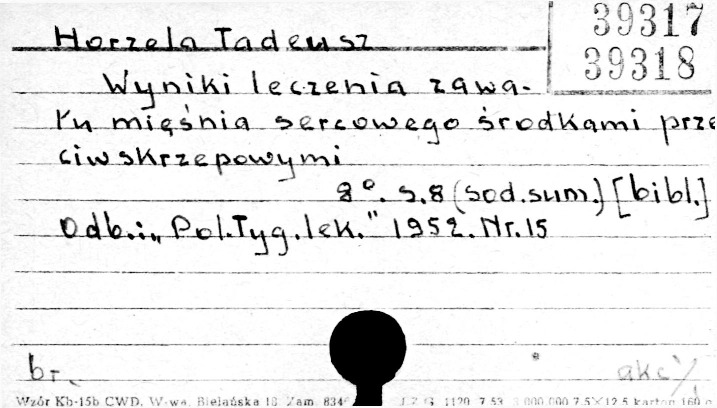 39317
39318
Horzela Tadeusz
Wyniki leczenia zawa-
łu mięśnia sercowego środkami prze
ciwskrzepowymi
8°. s.8 (sod.sum.) [bibl.]
Odb.: „Pol.Tyg.lek." 1952. Nr.15
br.
akc
Wzór Kb-15b CWD. W-wa, Bielańska 18 Zam. 834 1120 7.53 3 000 000 7.5×12.5 karton 160 g